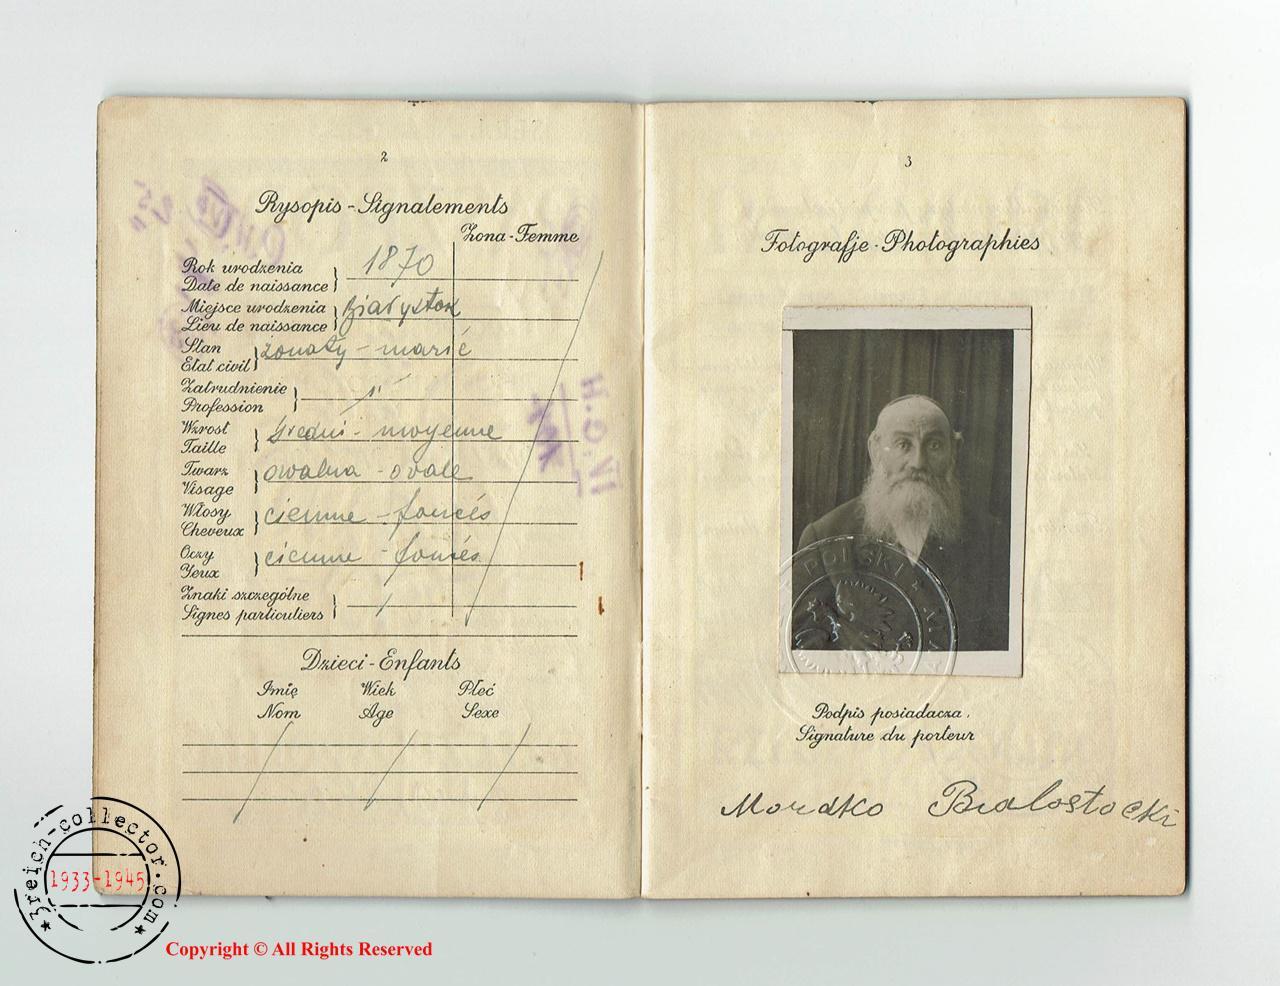 2
Rysopis - Signalements
Żona - Femme
Rok urodzenia
Date de naissance
1870
Miejsce urodzenia
Lieu de naissance
Białystok
Stan
Etat civil
żonaty - marié
Zatrudnienie
Profession
Wzrost
Taille
średni - moyenne
Twarz
Visage
owalna - ovale
Włosy
Cheveux
ciemne - foncés
Oczy
Yeux
ciemne - foncés
Znaki szczególne
Signes particuliers
Dzieci - Enfants
Imię Wiek Płeć
Nom Age Sexe
3
Fotografje - Photographies
POLSKI
Podpis posiadacza.
Signature du porteur
Mordko Bialostocki
3reich-collector.com
1933-1945
Copyright © All Rights Reserved